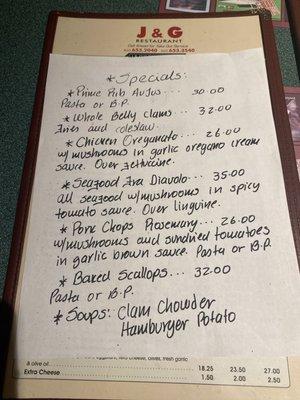 J & G
RESTAURANT
Call Ahead for Take Out Service
*Specials:
*Prime Rib AuJus... 30.00
Pasta or B.P.
*Whole Belly Clams... 32.00
Fries and coleslaw.
*Chicken Oreganato... 26.00
w/mushrooms in garlic oregano cream
sauce. Over fettucine.
*Seafood Fra Diavolo... 35.00
all seafood w/mushrooms in spicy
tomato sauce. Over linguine.
*Pork Chops Rosemary... 26.00
w/mushrooms and sundried tomatoes
in garlic brown sauce. Pasta or B.P.
*Baked Scallops... 32.00
Pasta or B.P.
*Soups: Clam Chowder
Hamburger Potato
& olive oil
18.25 23.50 27.00
Extra Cheese 1.50 2.00 2.50